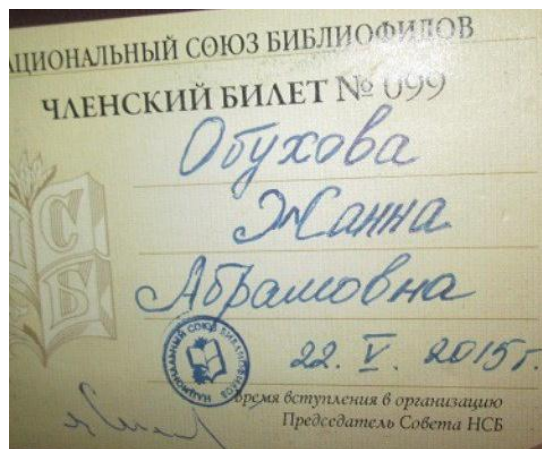 НАЦИОНАЛЬНЫЙ СОЮЗ БИБЛИОФИЛОВ
ЧЛЕНСКИЙ БИЛЕТ № 099
Обухова
Жанна
Абрамовна
НАЦИОНАЛЬНЫЙ СОЮЗ БИБЛИОФИЛОВ
22. V. 2015г.
время вступления в организацию
Председатель Совета НСБ